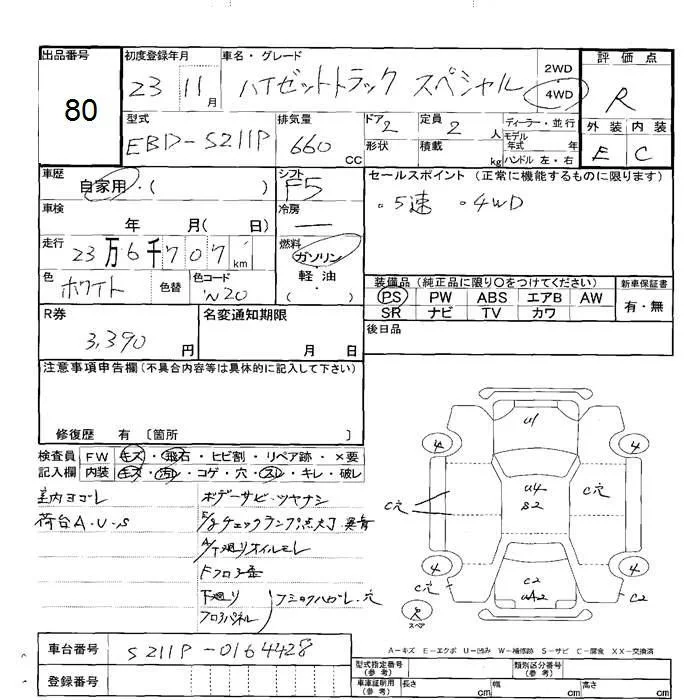 出品番号
80
初度登録年月
23 11月
車名・グレード
ハイゼットトラック スペシャル
2WD
4WD
評価点
R
型式
EBD-S211P
排気量
660
CC
ドア
2
定員
2
人
ディーラー・並行
形状
積載
kg
モデル年式
年
ハンドル 左・右
外装 内装
E C
車歴
自家用・( )
シフト
F5
セールスポイント (正常に機能するものに限ります)
・5速 ・4WD
車検
年 月( 日)
冷房
―
走行
23万6千707km
燃料
ガソリン
軽・油
( )
色
ホワイト
色替
色コード
W20
装備品 (純正品に限り○をつけてください)
PS PW ABS エアB AW
SR ナビ TV カワ
新車保証書
有・無
R券
3,390
円
名変通知期限
月 日
後日品
注意事項申告欄(不具合内容等は具体的に記入して下さい)
修復歴 有 〔箇所 〕
検査員
記入欄
FW キズ・飛石・ヒビ割・リペア跡・×要
内装 キズ・汚れ・コゲ・穴・スレ・キレ・破レ
室内ヨゴレ
荷台A・U・S
ボデーサビ・ツヤナシ
E/gチェックランプ点灯
A/T下廻りオイルモレ
下廻り
フロアパネル
U1
4
4
C穴
U4
S2
C穴
4
4
C穴
C2
UA2
C2
R
スペア
A-キズ E-エクボ U-凹み W-補修跡 S-サビ C-腐食 XX-交換済
車台番号
S211P-0164428
登録番号
型式指定番号
(参考)
類別区分番号
(参考)
車庫証明用
(参考)
長さ
cm
幅
cm
高さ
cm